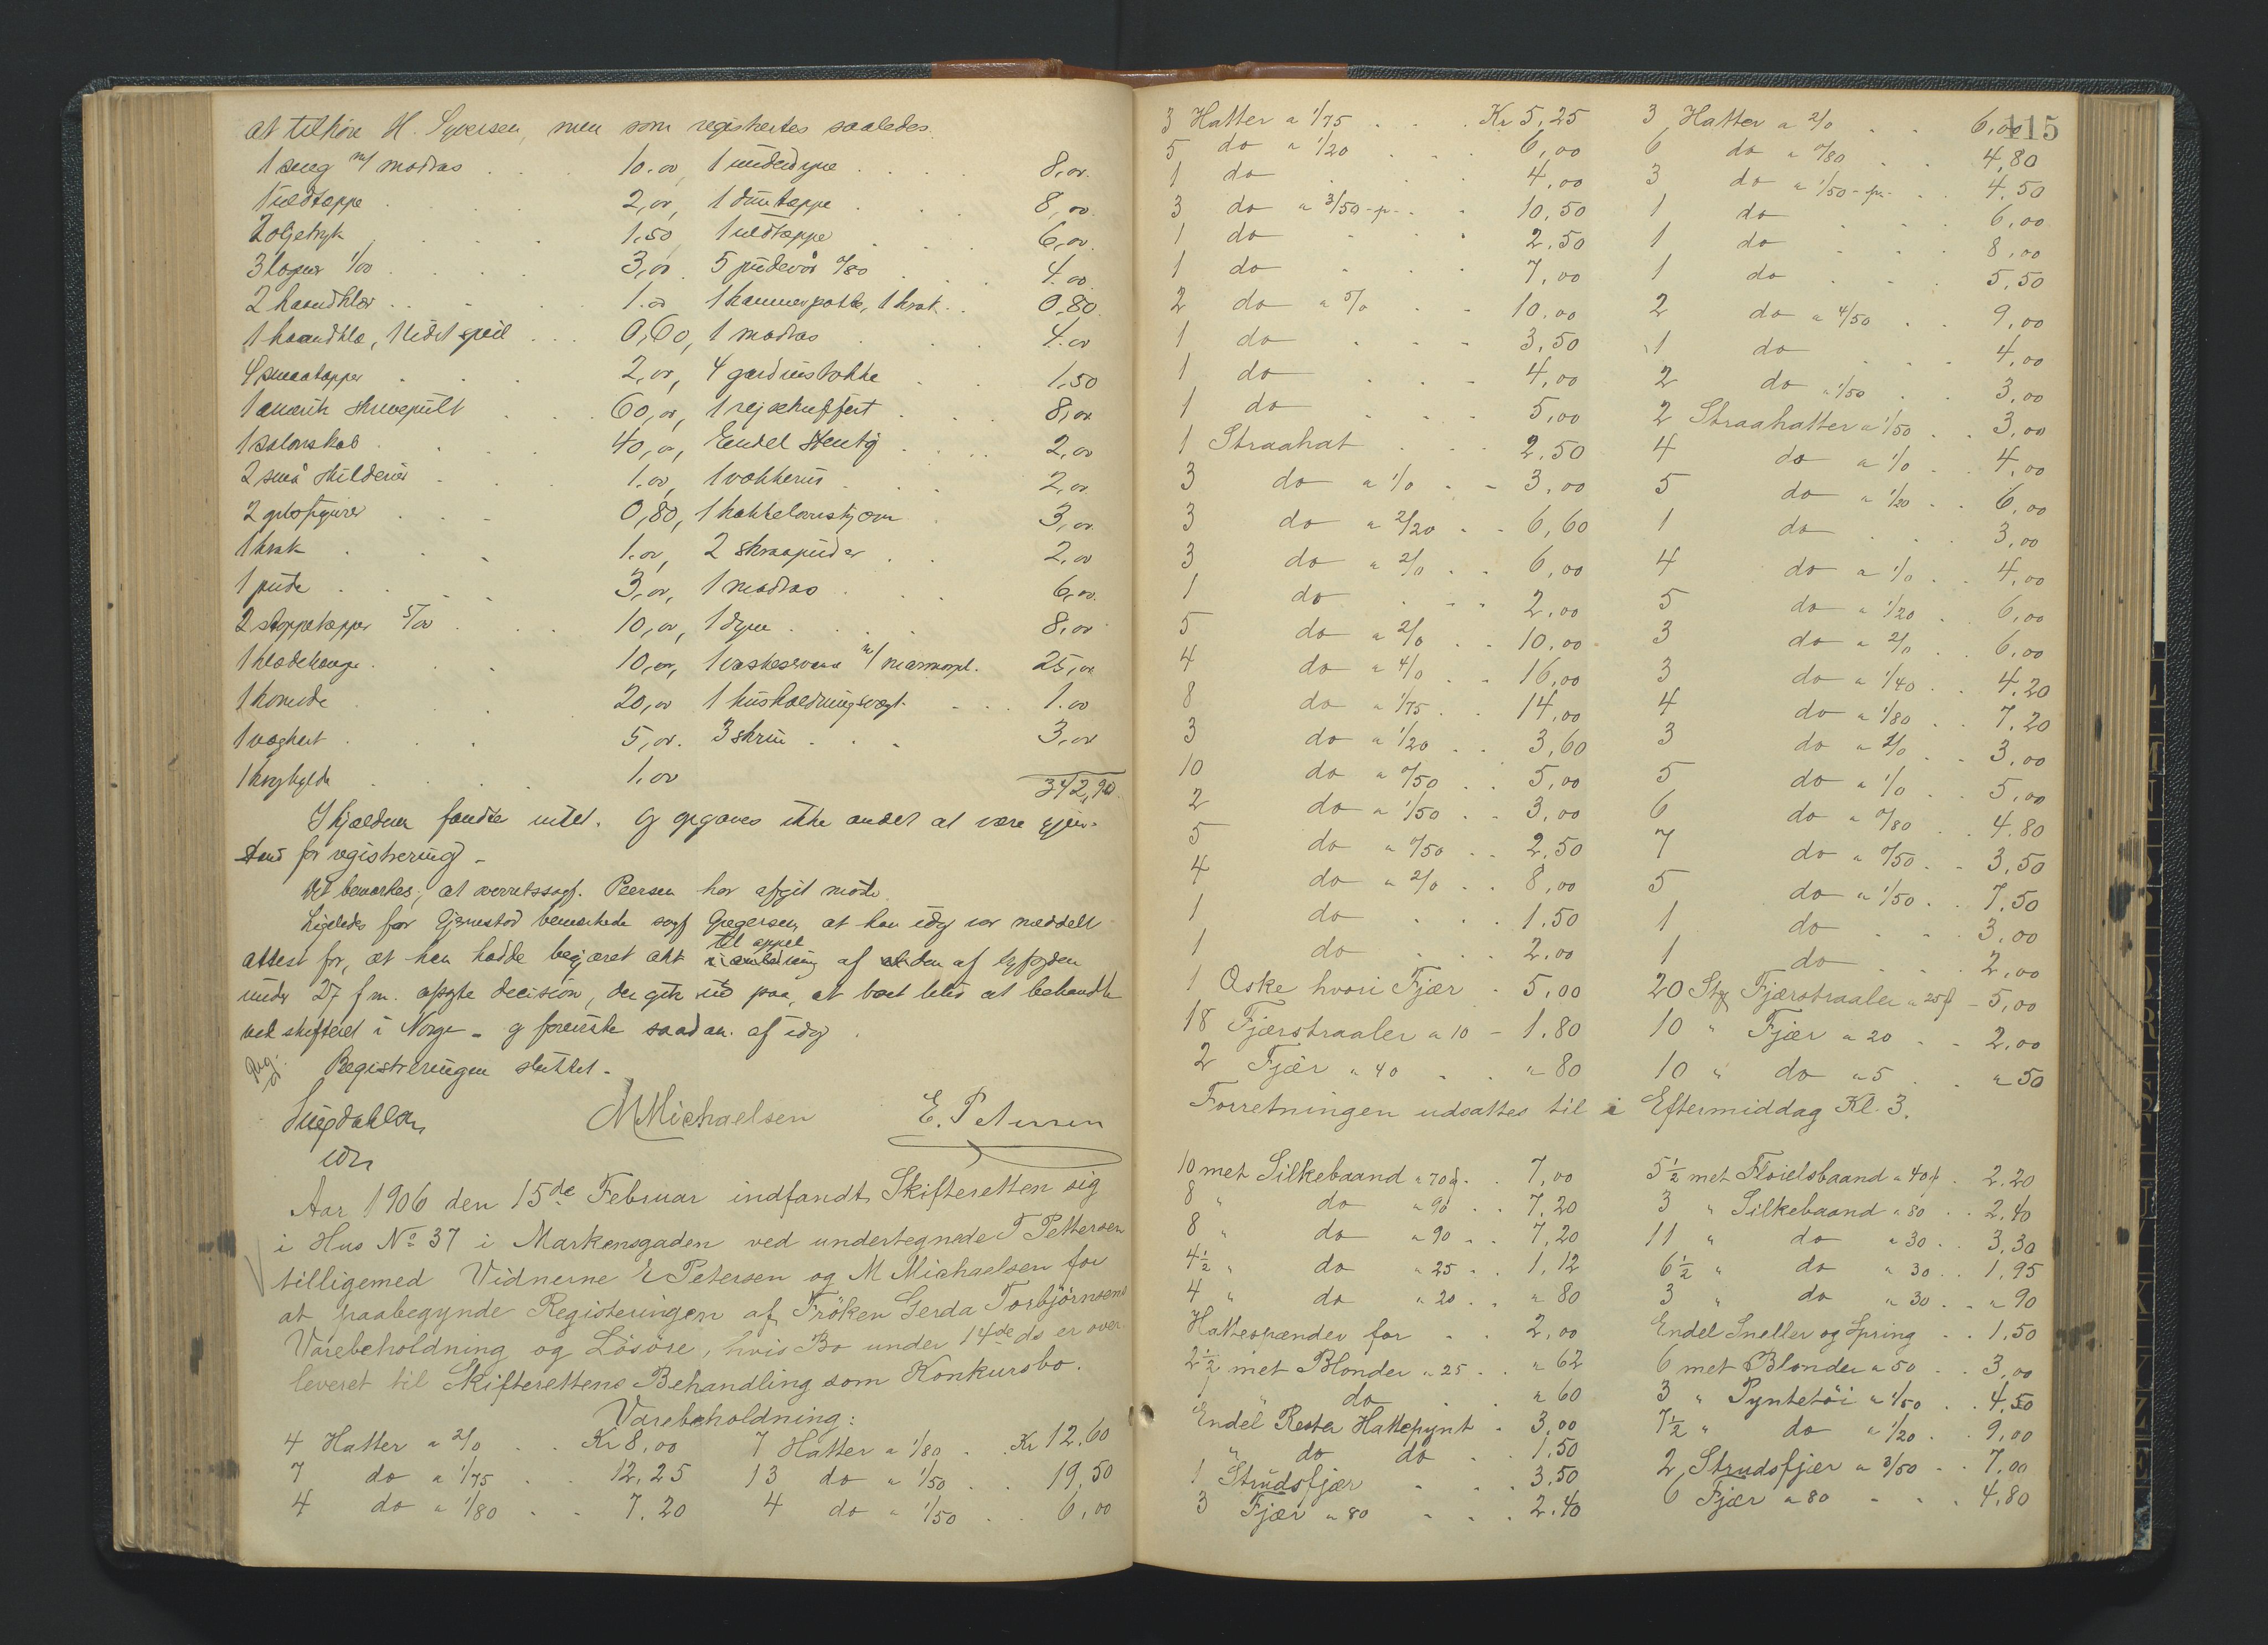 at tilhøre H. Syversen, men som registrertes saaledes.
1 seng m/ madras . . . 10.00, 1 underdyne . . . . 8,00.
1 uldtæppe . . . . 2,00, 1 duntæppe . . . 8,00.
2 oljetryk . . . . 1.50 1 uldtæppe . . . 6,00.
3 lagner 1/00 . . . . 3,00. 5 pudevår 0/80 . . . 4.00
2 haandklær . . . . 1.00 1 kammerpotte, 1 krak . . 0,80.
1 haandklæ, 1 lidet speil . . . 0,60, 1 madras . . . 4.00
4 smaatæpper . . . 2,00, 4 gardinstokke . . 1,50
1 amerik skrivepult . . . 60,00, 1 rejsekuffert . . . 8,00
1 salonskab . . . 40,00, Endel stentøj . . . . 2,00
2 små skilderier . . . 1.00, 1 vækkerur . . . 2,00
2 gibsfigurer . . . 0,80, 1 kakkelovnskjærm . 3,00.
1 krak . . . . 1.00, 2 skraapuder . . 2,00
1 pude . . . . 3,00, 1 madras . . . 6,00.
2 stoppetæpper 5/00 . . . 10,00, 1 dyne . . . . 8,00
1 klædehænge . . . 10,00, 1 vaskeservant m/ marmorpl. 25,00
1 komode . . . 20,00 1 husholdningsvægt . . . 1.00
1 vægkart . . . 5,00. 3 skrin . . . 3,00
1 kroghylde . . . 1.00 342,90.
I kjælderen fandtes intet. Og opgaves ikke andet at være gjen-
stand for registrering. -
Det bemærkes, at overretssagf. Peersen har afgit møde.
Ligeledes før Gjernestad bemærkede sagf Gregersen, at han idag var meddelt
attest for, at han hadde begjæret akt til appel i anledning af den af byfogden
under 27 f m. afsagte decision, der gik ud paa, at boet blev at behandle
ved skifteret i Norge - og forviste saadan. af idag.
Registreringen sluttet. -
M Michaelsen E. Petersen
Aar 1906 den 15de Februar indfandt Skifteretten sig
i Hus No 37 i Markensgaden ved undertegnede T Pettersen
tilligemed Vidnerne E Petersen og M Michaelsen for
at paabegynde Registeringen af Fröken Gerda Torbjörnsens
Varebeholdning og Lösöre, hvis Bo under 14de ds er over-
leveret til Skifterettens Behandling som Konkursbo.
Varebeholdning:
4 Hatter a 2/0 . . Kr 8,00 7 Hatter a 1/80 . . Kr 12.60
7 do a 1/75 . . 12,25 13 do a 1/50 . . 19,50
4 do a 1/80 . . 7.20 4 do a 1/50 . . 6,00
115
3 Hatter a 1/75 . . . Kr 5,25 3 Hatter a 2/0 . . 6,00
5 do a 1/20 . . 6,00 6 do a 0/80 . . 4,80
1 do . . . 4,00 3 do a 1/50 - pr. . . 4,50
3 do a 3/50 - pr. . . 10,50 1 do . . . 6,00
1 do . . . 2.50 1 do . . . 8,00
1 do . . . 7,00 1 do . . . 5,50
2 do a 5/0 . . 10,00 2 do a 4/50 . . 9,00
1 do . . . 3,50 1 do . . . 4,00
1 do . . . 4,00 2 do a 1/50 . . 3,00
1 do . . . 5,00 2 Straahatter a 1/50 . . 3,00
1 Straahat . . . 2.50 4 do a 1/0 . . 4,00
3 do a 1/0 . . 3,00 5 do a 1/20 . . 6,00
3 do a 2/20 . . 6,60 1 do . . . 3,00
3 do a 2/0 . . 6,00 4 do a 1/0 . . 4,00
1 do . . . 2,00 5 do a 1/20 . 6,00
5 do a 2/0 . . 10,00 3 do a 2/0 . . 6,00
4 do a 4/0 . . 16,00 3 do a 1/40 . . 4,20
8 do a 1/75 . . 14,00 4 do a 1/80 . . 7,20
3 do a 1/20 . . 3,60 3 do a 2/0 . . 3,00
10 do a 0/50 . . 5,00 5 do a 1/0 . . 5,00
2 do a 1/50 . . 3,00 6 do a 0/80 . . 4.80
5 do a 0/50 . . 2,50 7 do a 0/50 . . 3,50
4 do a 2/0 . . 8,00 5 do a 1/50 . . 7,50
1 do . . . 1.50 1 do . . . 3,00
1 do . . . 2.00 1 do . . . 2,00
1 Oske hvori Fjær . 5,00 20 Stk Fjærstraaler a 25 ø - 5,00
18 Fjærstraaler a 10 - 1.80 10 " Fjær a 20 . . 2,00
2 Fjær a 40 . . " 80 10 " do a 5 . . " 50
Forretningen udsattes til i Eftermiddag Kl. 3.
10 met Silkebaand a 70 ø . . 7,00 5½ met Fløielsbaand a 40 ø . 2.20
8 " do a 90 . . 7,20 3 " Silkebaand a 80 . . 2,40
8 " do a 90 . . 7,20 11 " do a 30 . . 3,30
4½ " do a 25 . . 1,12 6½ " do a 30 . . 1,95
4 " do a 20 . . " 80 3 " do a 30 . . " 90
Hattespænder for . . 2,00 Endel Sneller og Spring . . 1,50
2½ met Blonder a 25 . . " 62 6 met Blonder a 50 . . 3,00
1 " do . . " 60 3 " Pyntetöi a 1/50 . . 4,50
Endel Rester Hattepynt . 3,00 7½ " do a 1/20 . . 9,00
" do do . . 1,50 2 Strudsfjær a 3/50 . . 7,00
1 Strudsfjær . . . 3.50 6 Fjær a 80 . . . 4,80
3 Fjær a 80 . . . 2.40